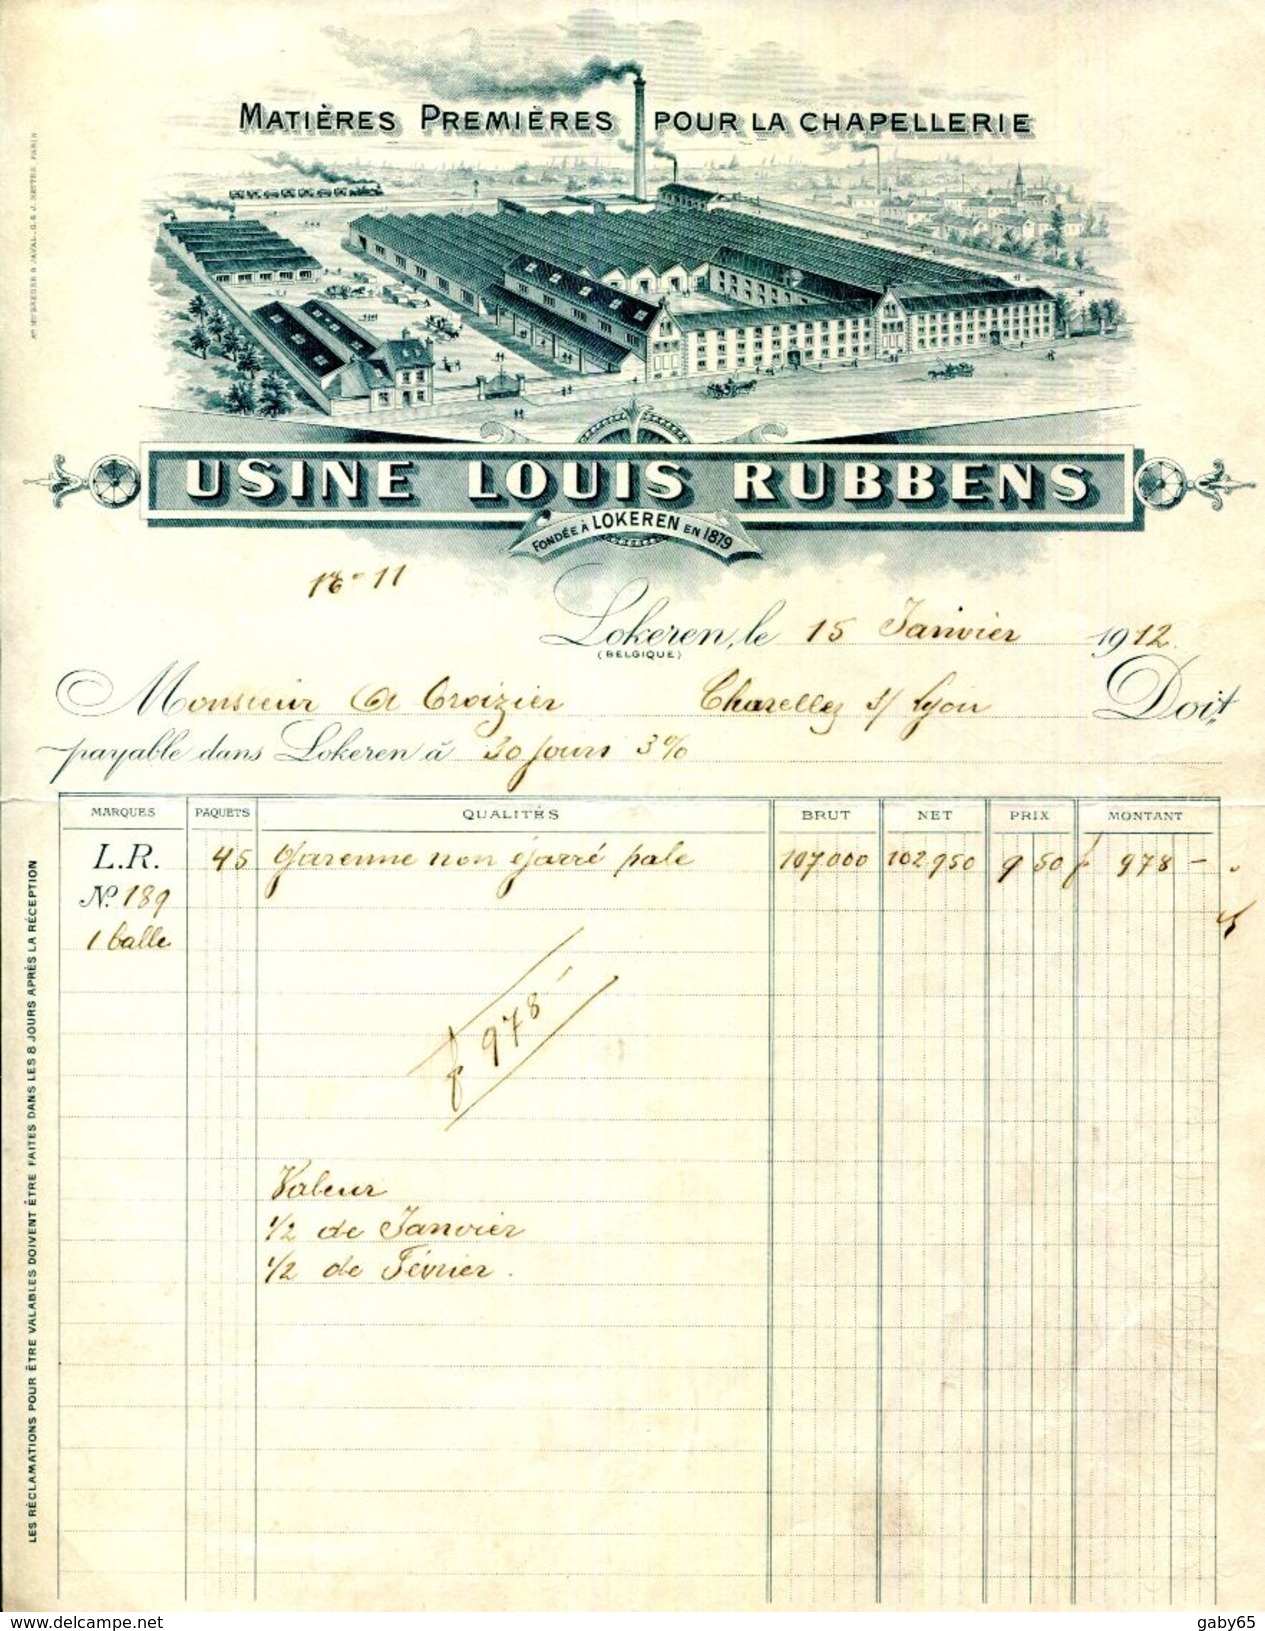 MATIÈRES PREMIÈRES POUR LA CHAPELLERIE
USINE LOUIS RUBBENS
FONDÉE À LOKEREN EN 1879
11
Lokeren, le 15 Janvier 1912
(BELGIQUE)
Monsieur Croizier Chazelles s/ Lyon Doit
payable dans Lokeren à 30 jours 3%
MARQUES PAQUETS QUALITÉS BRUT NET PRIX MONTANT
L.R. 45 Garenne non éjarré pale 107.000 102.950 9 50 f 978 –
No. 189
1 balle
f 978
Valeur
1/2 de Janvier
1/2 de Février.
LES RÉCLAMATIONS POUR ÊTRE VALABLES DOIVENT ÊTRE FAITES DANS LES 8 JOURS APRÈS LA RÉCEPTION
www.delcampe.net
gaby65